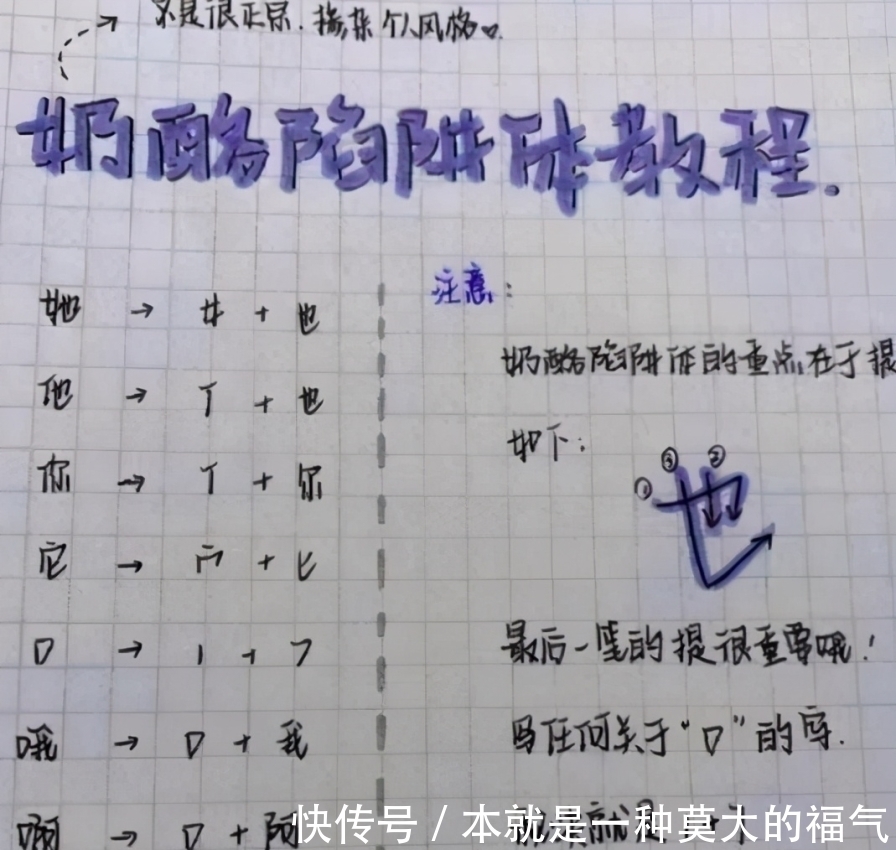 不是很正宗.掺杂个人风格
奶酪陷阱体教程.
她 → 女 + 也
他 → 亻 + 也
你 → 亻 + 尔
它 → 宀 + 匕
口 → 丨 + ㄱ
哦 → 口 + 我
啊 → 口 + 阿
注意:
奶酪陷阱体的重点在于提
如下:
① ③ ②
也
最后一笔的提很重要哦!
写任何关于“口”的字.
快传号 / 本就是一种莫大的福气